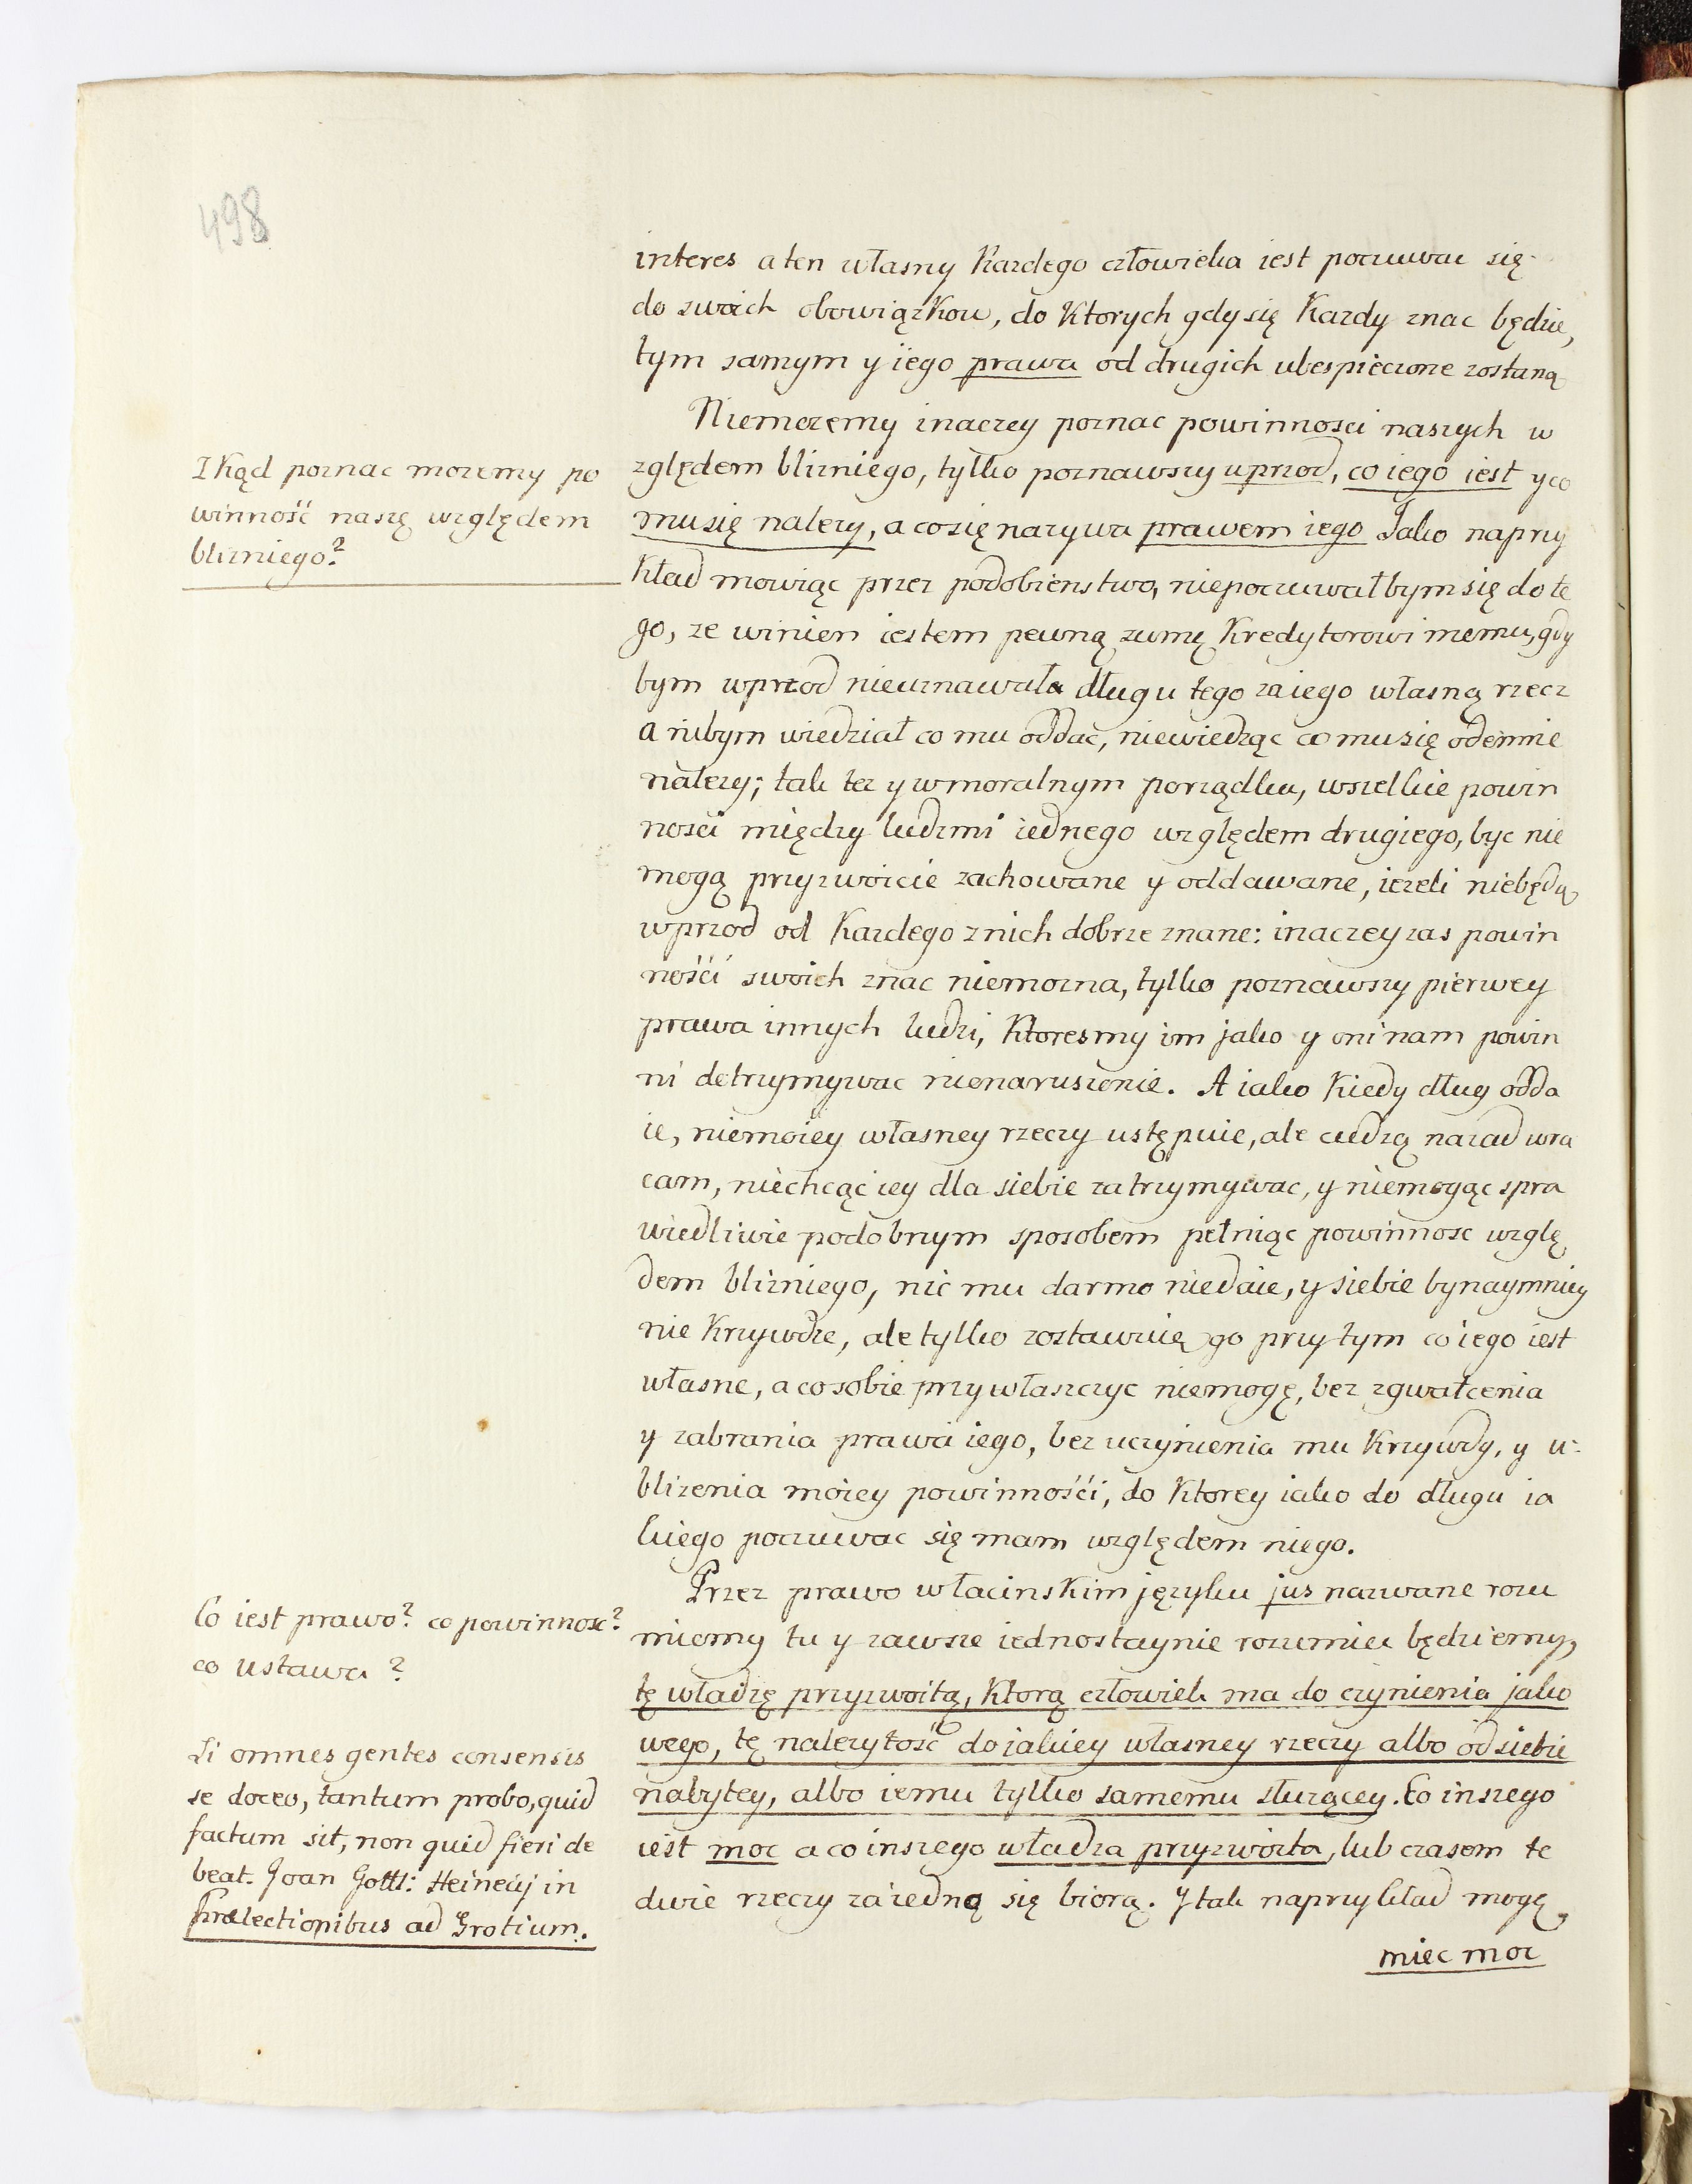 498
interes a ten własny Kazdego człowieka iest poczuwac się
do swoich obowiązkow, do Ktorych gdy się Kazdy znac będzie,
tym samym y iego prawa od drugich ubespieczone zostaną
Niemozemy inaczey poznac powinnosci naszych w
zględem blizniego, tylko poznawszy uprzod, co iego iest y co
mu się nalezy, a co się nazywa prawem iego Jako naprzy
kład mowiąc przez podobienstwo, niepoczuwałbym się do te
go, ze winien iestem pewną zumę Kredytorowi memu, gdy
bym wprzod nieuznawała długu tego za iego własną rzecz
a nibym wiedział co mu oddać, niewiedząc co mu się odemnie
nalezy; tak tez y w moralnym porządku, wszelkie powin
nosci między ludzmi iednego względem drugiego, byc nie
mogą przyzwoicie zachowane y oddawane, iezeli niebędą
wprzod od Kazdego z nich dobrze znane: inaczey zas powin
nośći swoich znac niemozna, tylko poznawszy pierwey
prawa innych ludzi, Ktoresmy im jako y oni nam powin
ni detrzymywac nienaruszenie. A iako Kiedy dług odda
ie, niemoiey własney rzeczy ustępuie, ale cudzą nazad wra
cam, niechcąc iey dla siebie zatrzymywac, y niemogąc spra
wiedliwie podobnym sposobem pełniąc powinnosc wzglę
dem blizniego, nic mu darmo niedaie, y siebie bynaymniey
nie Krzywdze, ale tylko zostawuię go przy tym co iego iest
własne, a co sobie przywłaszczyc niemogę, bez zgwałcenia
y zabrania prawa iego, bez uczynienia mu Krzywdy, y u-
blizenia moiey powinnośći, do Ktorey iako do długu ia
kiego poczuwac się mam względem niego.
Przez prawo w łacinskim języku jus nazwane rozu
miemy tu y zawsze iednostaynie rozumiec będziemy,
tę władzę przyzwoitą, Ktorą człowiek ma do czynienia jako
wego, tę nalezytość do iakiey własney rzeczy albo od siebie
nabytey, albo iemu tylko samemu słuzącey. Co inszego
iest moc a co inszego władza przyzwoita, lub czasem te
dwie rzeczy za iedną się biorą. Y tak naprzykład mogę
miec moc
Zkąd poznac mozemy po
winność naszę względem
blizniego?
Co iest prawo? co powinnosc?
co ustawa?
Si omnes gentes consensis
se doceo, tantum probo, quid
factum sit, non quid fieri de
beat. Joan Gottl: Heinecij in
Prælectionibus ad Grotium.